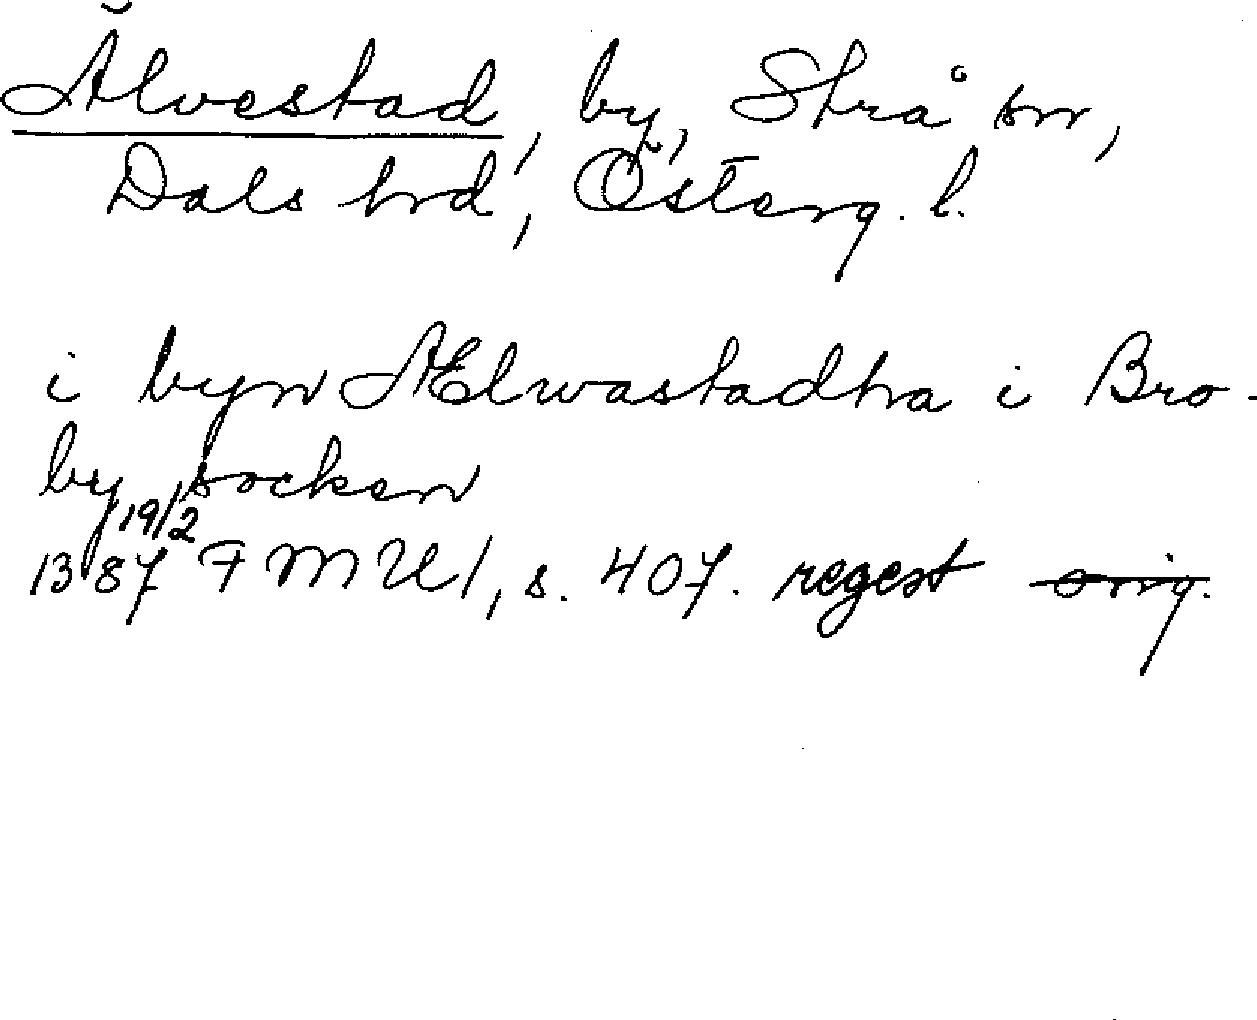 Älvestad, by, Strå sn,
Dals hrd, Österg. l.
i byn Ælwastadha i Bro-
by socken
19/2
1387 FMU 1, s. 407. regest orig.